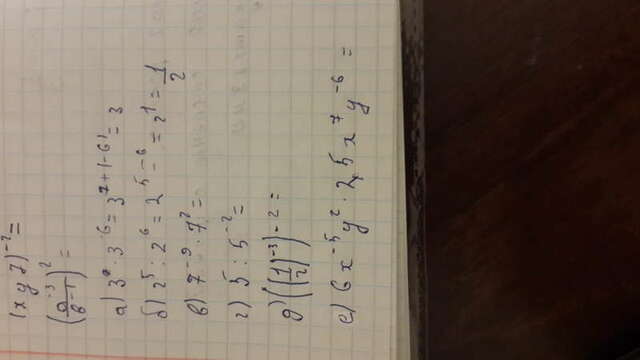 (xy7)⁻²=
(a⁻³/b⁻¹)²=
а) 3⁷·3⁻⁶=3⁷⁺⁽⁻⁶⁾=3
б) 2⁵:2⁶=2⁵⁻⁶=2¹=1/2
в) 7⁻⁹·7²=
г) 5:5⁻²=
д) ((1/2)⁻³)⁻²=
е) 6x⁻⁵y²·2,5x⁷y⁻⁶=